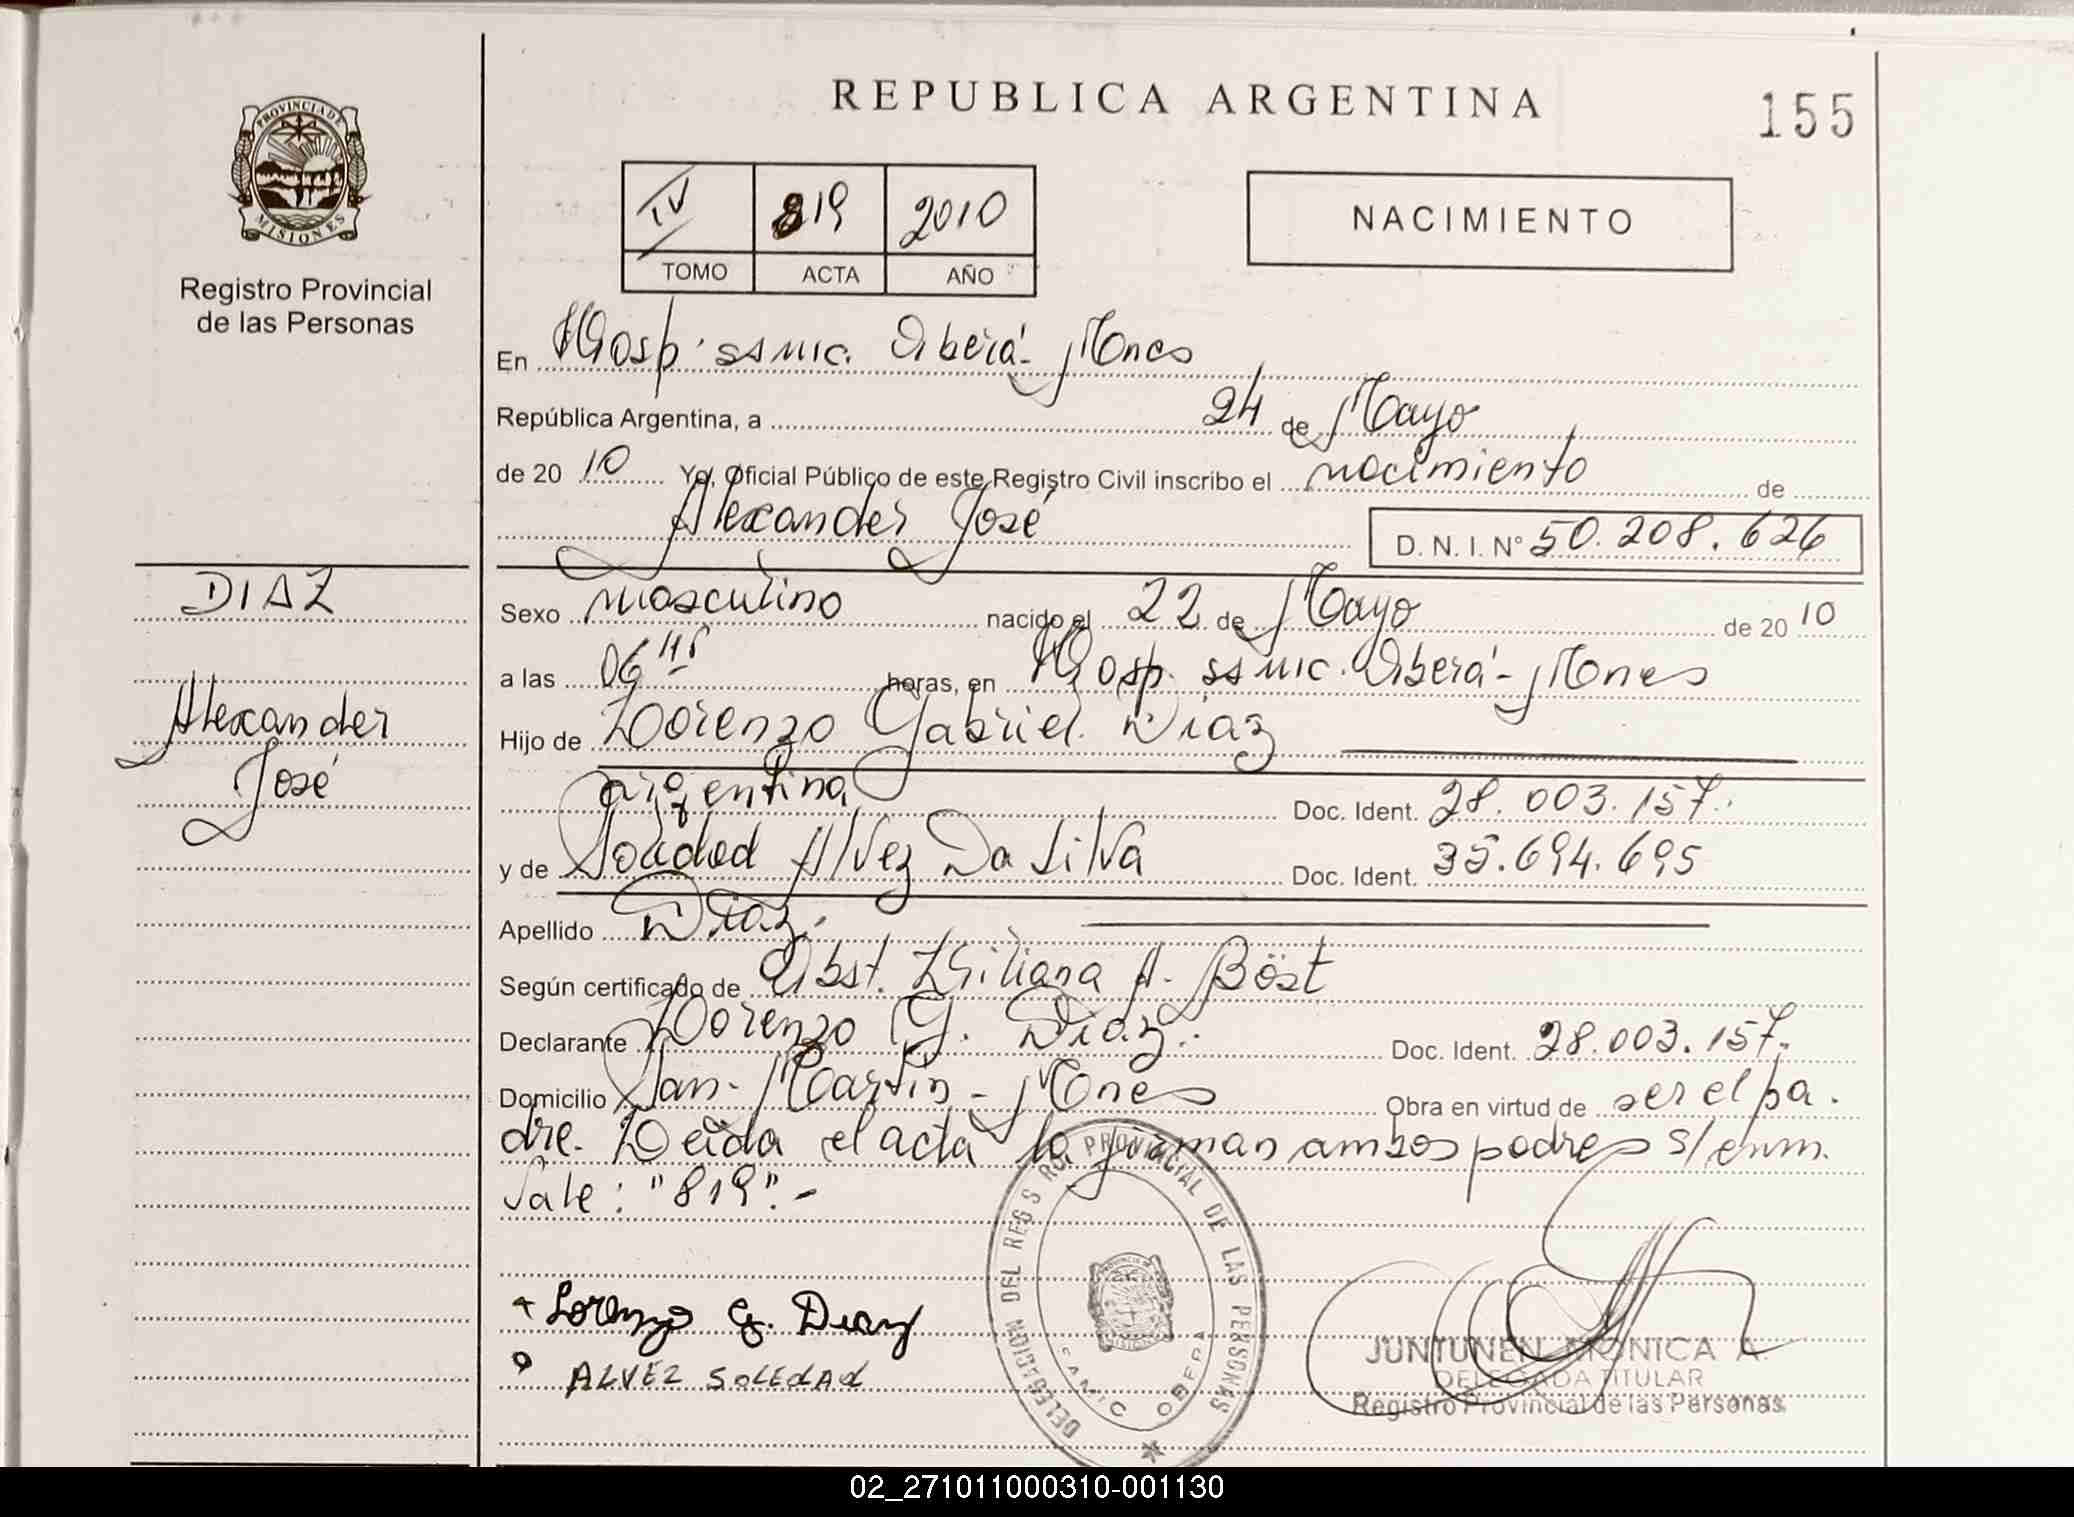 REPUBLICA ARGENTINA
155
PROVINCIA DE
MISIONES
Registro Provincial
de las Personas
IV 819 2010
TOMO ACTA AÑO
NACIMIENTO
En Hosp. ssmic. Oberá - Mnes
República Argentina, a 24 de Mayo
de 20 10 Yo, Oficial Público de este Registro Civil inscribo el nacimiento de
Alexander José
D. N. I. N° 50.208.626
DIAZ
Alexander
José
Sexo masculino nacido el 22 de Mayo de 20 10
a las 06 hs horas, en Hosp. ssmic. Oberá - Mnes
Hijo de Lorenzo Gabriel Diaz
argentina Doc. Ident. 28.003.157.
y de Soledad Alvez Da Silva Doc. Ident. 35.694.695
Apellido Diaz.
Según certificado de Obst. Liliana A. Böst
Declarante Lorenzo G. Diaz. Doc. Ident. 28.003.157.
Domicilio San Martin - Mnes Obra en virtud de ser el pa.
dre. Leida el acta la firman ambos padres s/enm.
Vale: "819".-
Lorenzo G. Diaz
ALVEZ SOLEDAD
DELEGACION DEL REGISTRO PROVINCIAL DE LAS PERSONAS
SAMIC OBERA
JUNTUNEN MONICA A.
DELEGADA TITULAR
Registro Provincial de las Personas
02_271011000310-001130